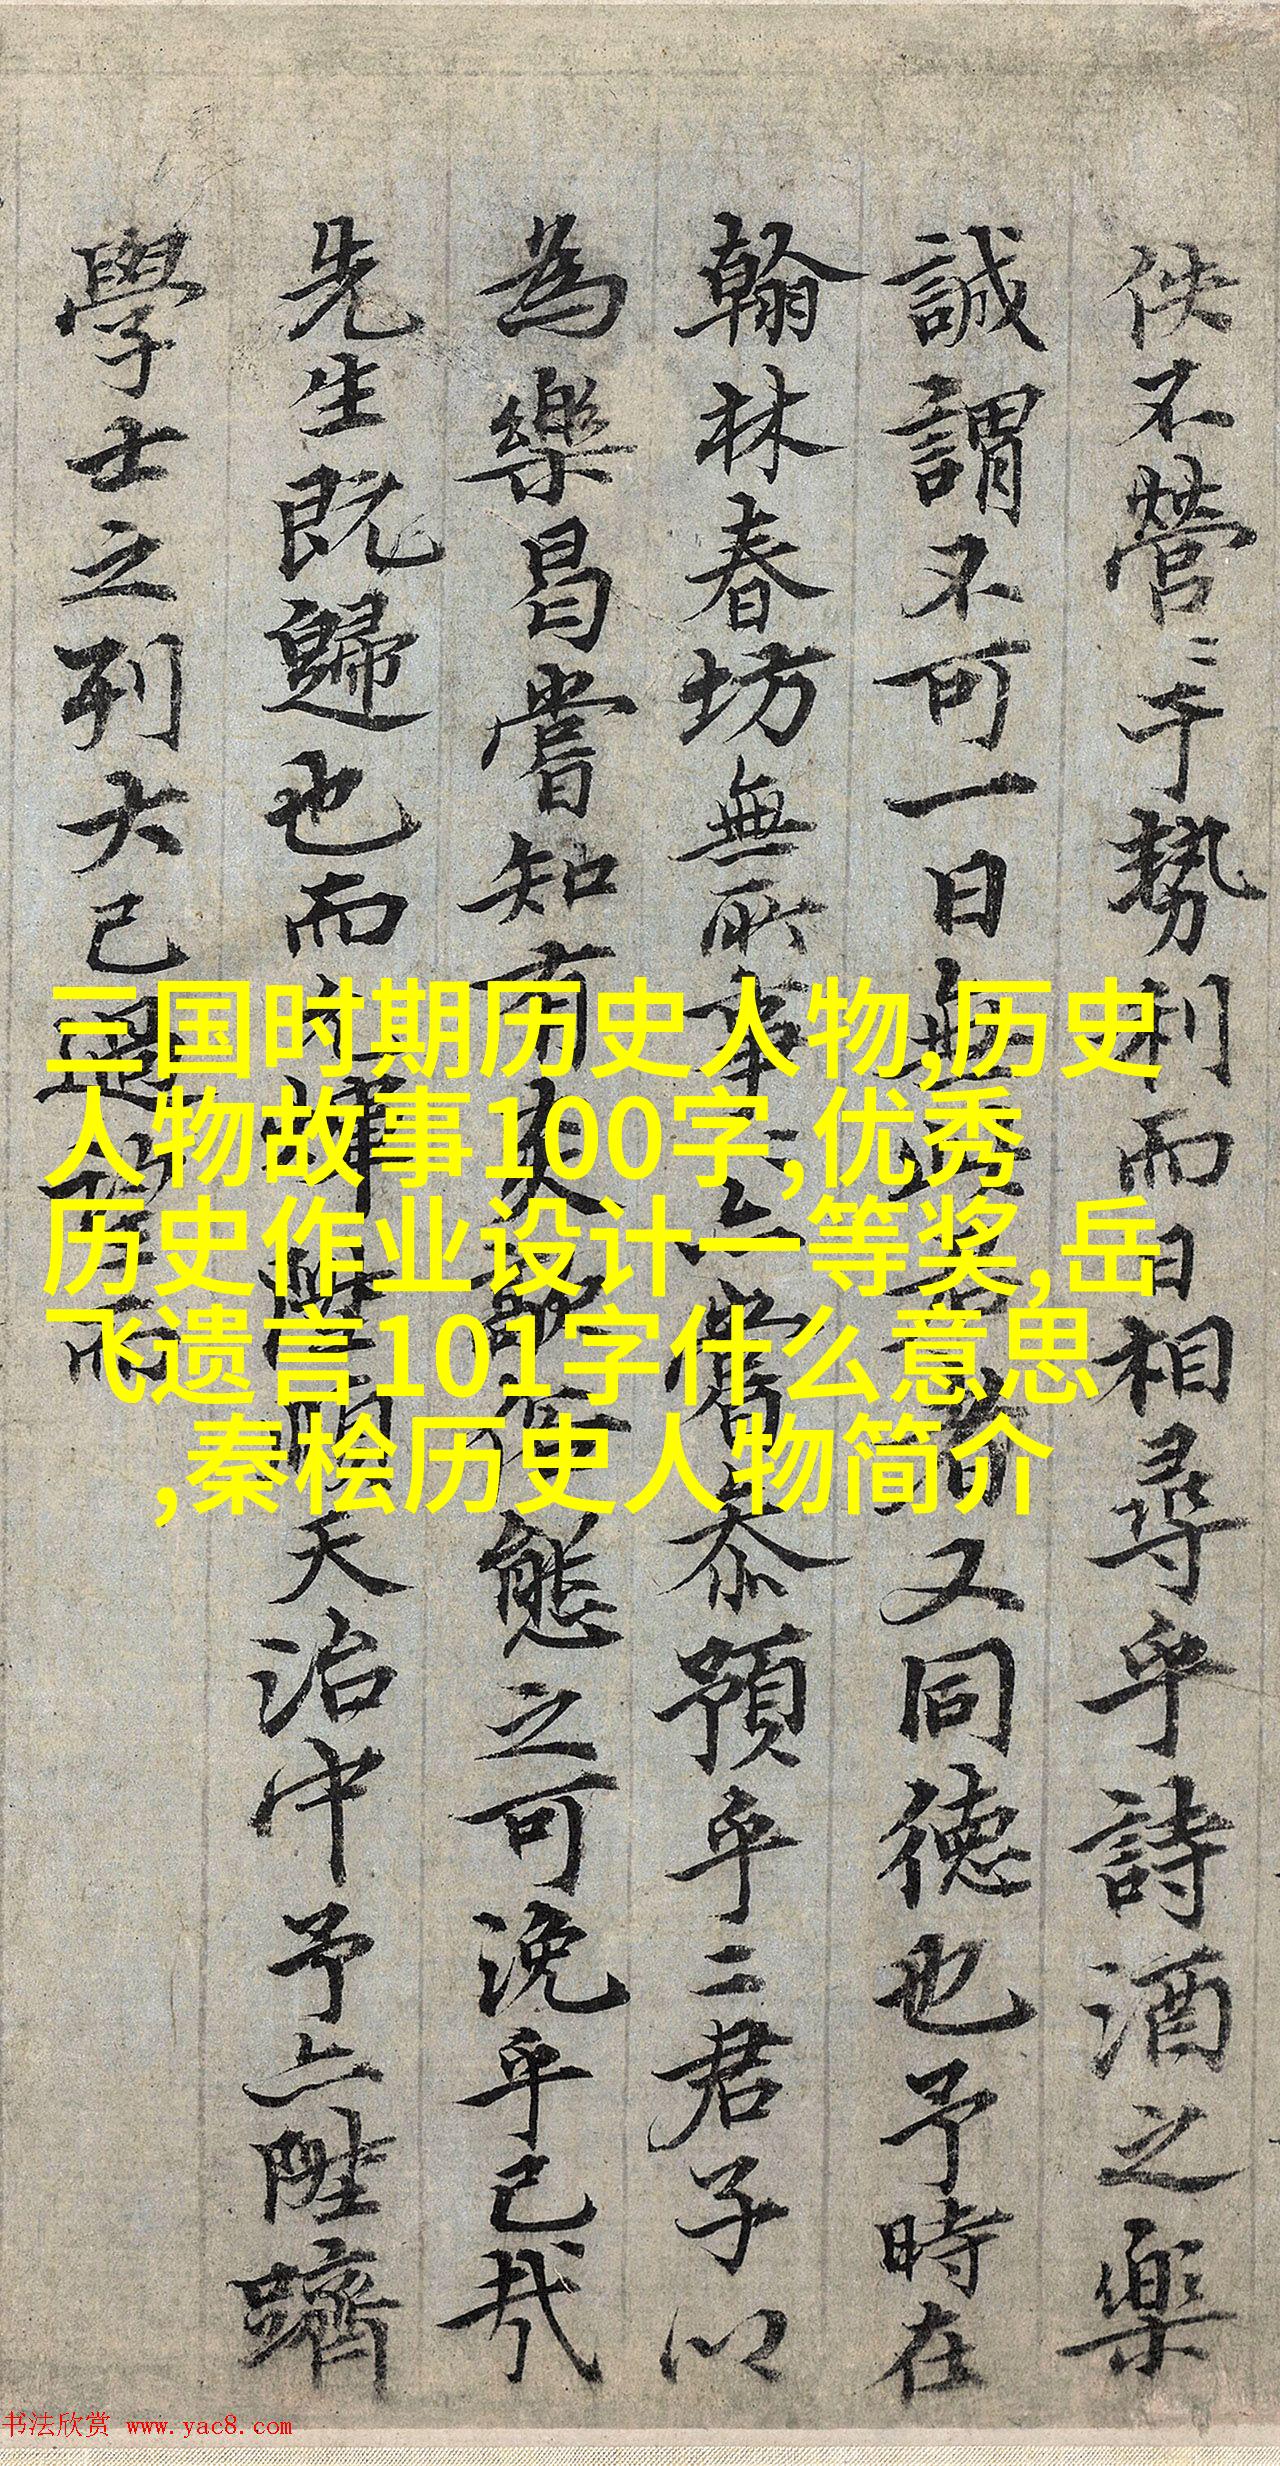 佚不營二于勢利而日相尋乎詩酒之樂
誠謂不可一日無
又同德也予時在
翰林春坊無所事
亦嘗忝預乎二君子以
為樂曷嘗知有
態之可浼乎已哉
先生既歸也而
天治中予亦陞躋
學士之列大已
而
三国时期历史人物,历史
人物故事100字,优秀
历史作业设计一等奖,岳
飞遗言101字什么意思
,秦桧历史人物简介
书法欣赏 www.yac8.com